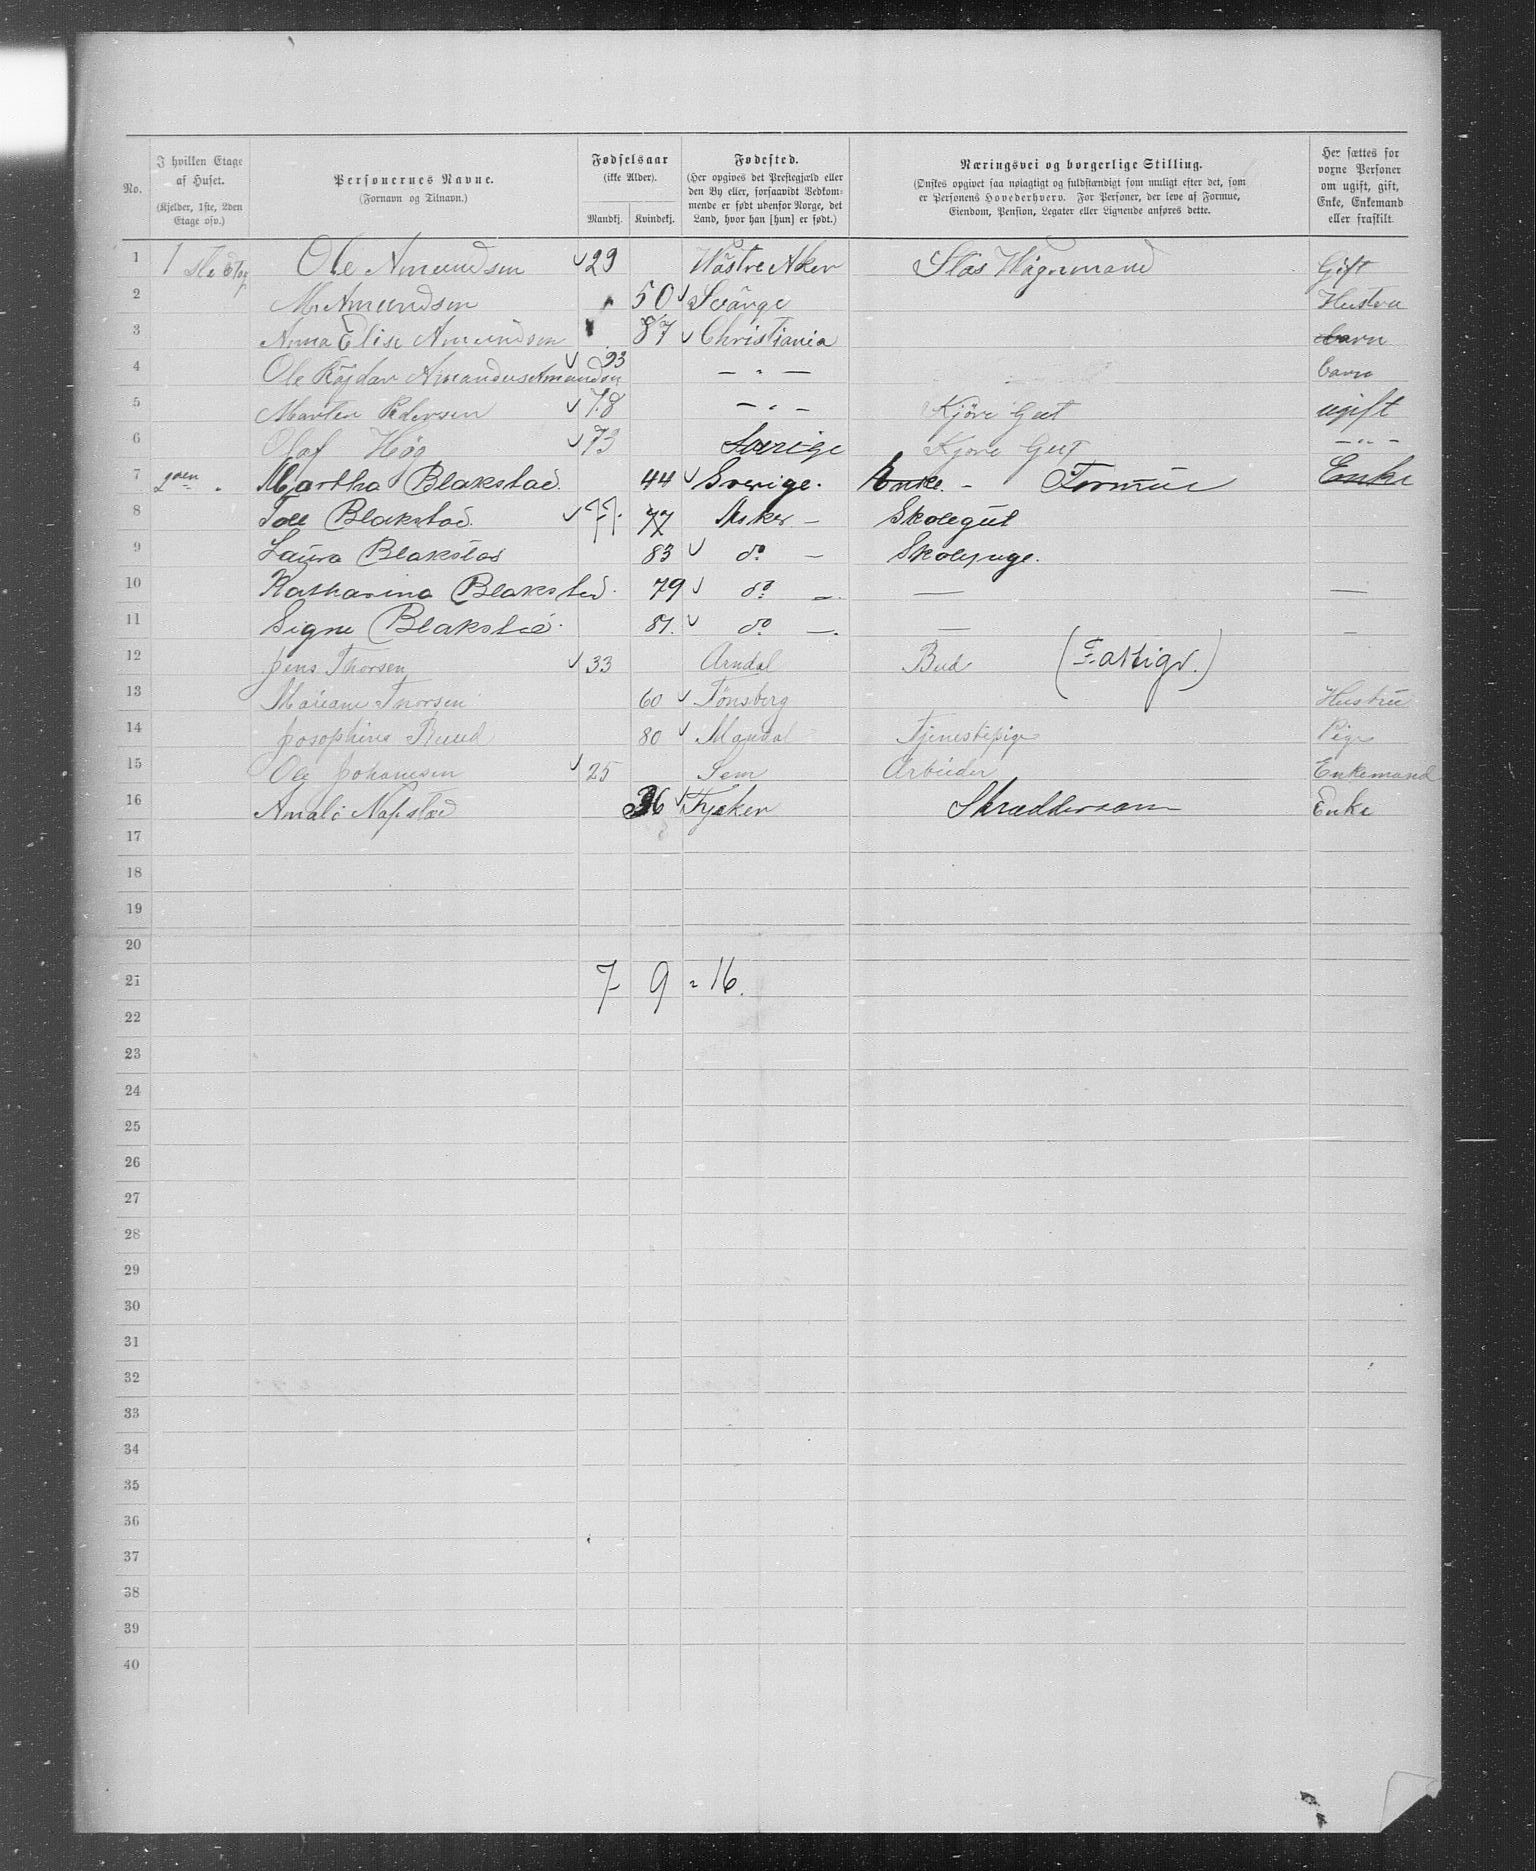 No.
I hvilken Etage af Huset.
(Kjelder, 1ste, 2den Etage osv.)
Personernes Navne.
(Fornavn og Tilnavn.)
Fødselsaar
(ikke Alder).
Mandkj. Kvindekj.
Fødested.
(Her opgives det Prestegjæld eller den By eller, forsaavidt Vedkommende er født udenfor Norge, det Land, hvor han [hun] er født.)
Næringsvei og borgerlige Stilling.
(Ønskes opgivet saa nøiagtigt og fuldstændigt som muligt efter det, som er Personens Hovederhverv. For Personer, der leve af Formue, Eiendom, Pension, Legater eller Lignende anføres dette.
Her sættes for voxne Personer om ugift, gift, Enke, Enkemand eller fraskilt.
1 1 ste Etag Ole Amundsen 29 Wästre Aker Slas Wögnmand Gift
2 M. Amundsen 50 Svärge Hustru
3 Anna Elise Amundsen 87 Christiania barn
4 Ole Räjdar Amandus Amundsen 93 — " — barn
5 Marten Pedersen 78 — " — Kjöre Gut ugift
6 Olaf Høg 73 Sverige Kjöre Gut — " —
7 2den " Martha Blakstad. 44 Sverige. Enke. - Formue Enke
8 Toll Blakstad. 77. 77 Asker — Skolegut
9 Laura Blakstad 83 do — Skolepige.
10 Katharina Blakstad. 79 do —. — —
11 Signe Blakstad. 81. do —. — —
12 Jens Thorsen 33 Arndal Bud (Fattigv.)
13 Mariane Thorsen 60 Tönsberg Hustru
14 Josephine Ruud 80 Mandal Tjenestepige Pige
15 Ole Johansen 25 Sem Arbeider Enkemand
16 Amali Napstad 36 Fysker Skræddersøm Enke
17
18
19
20
21 7 9 = 16.
22
23
24
25
26
27
28
29
30
31
32
33
34
35
36
37
38
39
40